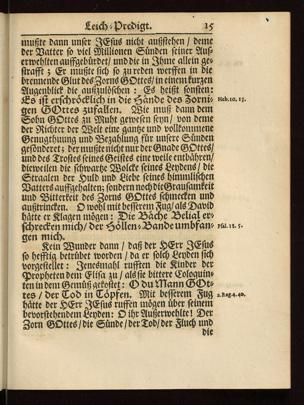 Leich-Predigt. 15
mußte dann unser JEsus nicht außstehen/ deme
der Vatter so vil Millionen Sünden seiner Auß-
erwehlten auffgebürdet/ und die in Ihme allein ge-
strafft; Er mußte sich so zu reden werffen in die
brennende Glut des Zorns GOttes/ in einem kurzen
Augenblick die außzulöschen: Es heißt sonsten:
Es ist erschröcklich in die Hände des Zorni- Heb. 10, 13.
gen GOttes zufallen. Wie muß dann dem
Sohn GOttes zu Muht gewesen seyn/ von deme
der Richter der Welt eine ganze und vollkommene
Genugthuung und Bezahlung für unsere Sünden
gesonderet: der mußte nicht nur der Gnade GOttes/
und des Trostes seines Geistes eine weile entbähren/
dieweilen die schwarze Wolcke seines Leydens/ die
Straalen der Huld und Liebe seines himmlischen
Vatters auffgehalten; sondern noch die Grausamkeit
und Bitterkeit des Zorns GOttes schmecken und
außtrincken. O wohl mit besserem Fug/ als David
hätte er Klagen mögen: Die Bäche Belial er-
schrecken mich/ der Höllen-Bande umbfan- Psal. 18. 5.
gen mich.
Kein Wunder dann/ daß der HErr JEsus
so hefftig betrübet worden/ da er solch Leyden sich
vorgestellt: Jenesmahl rufften die Kinder der
Propheten dem Elisa zu/ als sie bittere Coloquin-
ten in dem Gemüß gekostet: O du Mann GOt-
tes/ der Tod in Töpfen. Mit besserem Fug 2. Reg. 4. 40.
hätte der HErr JEsus ruffen mögen über seinem
bevorstehendem Leyden: O ihr Außerwehlte! Der
Zorn GOttes/ die Sünde/ der Tod/ der Fluch und
die